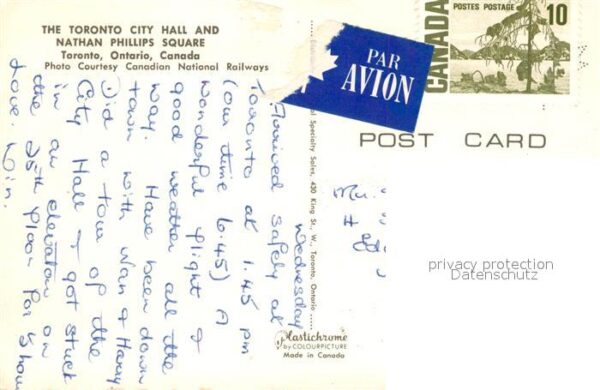 THE TORONTO CITY HALL AND
NATHAN PHILLIPS SQUARE
Toronto, Ontario, Canada
Photo Courtesy Canadian National Railways
PAR
AVION
CANADA
POSTES POSTAGE
10
POST CARD
Wednesday
Arrived safely at
Toronto at 1.45 pm
(our time 6.45) A
wonderful flight &
good weather all the
way. Have been down
town with Nan & Harry
Did a tour of the
City Hall & got stuck
in an elevator on
the 25th floor for ½ hour
Love.
Specialty Sales, 430 King St., W., Toronto, Ontario
Plastichrome
by COLOURPICTURE
Made in Canada
H
privacy protection
Datenschutz